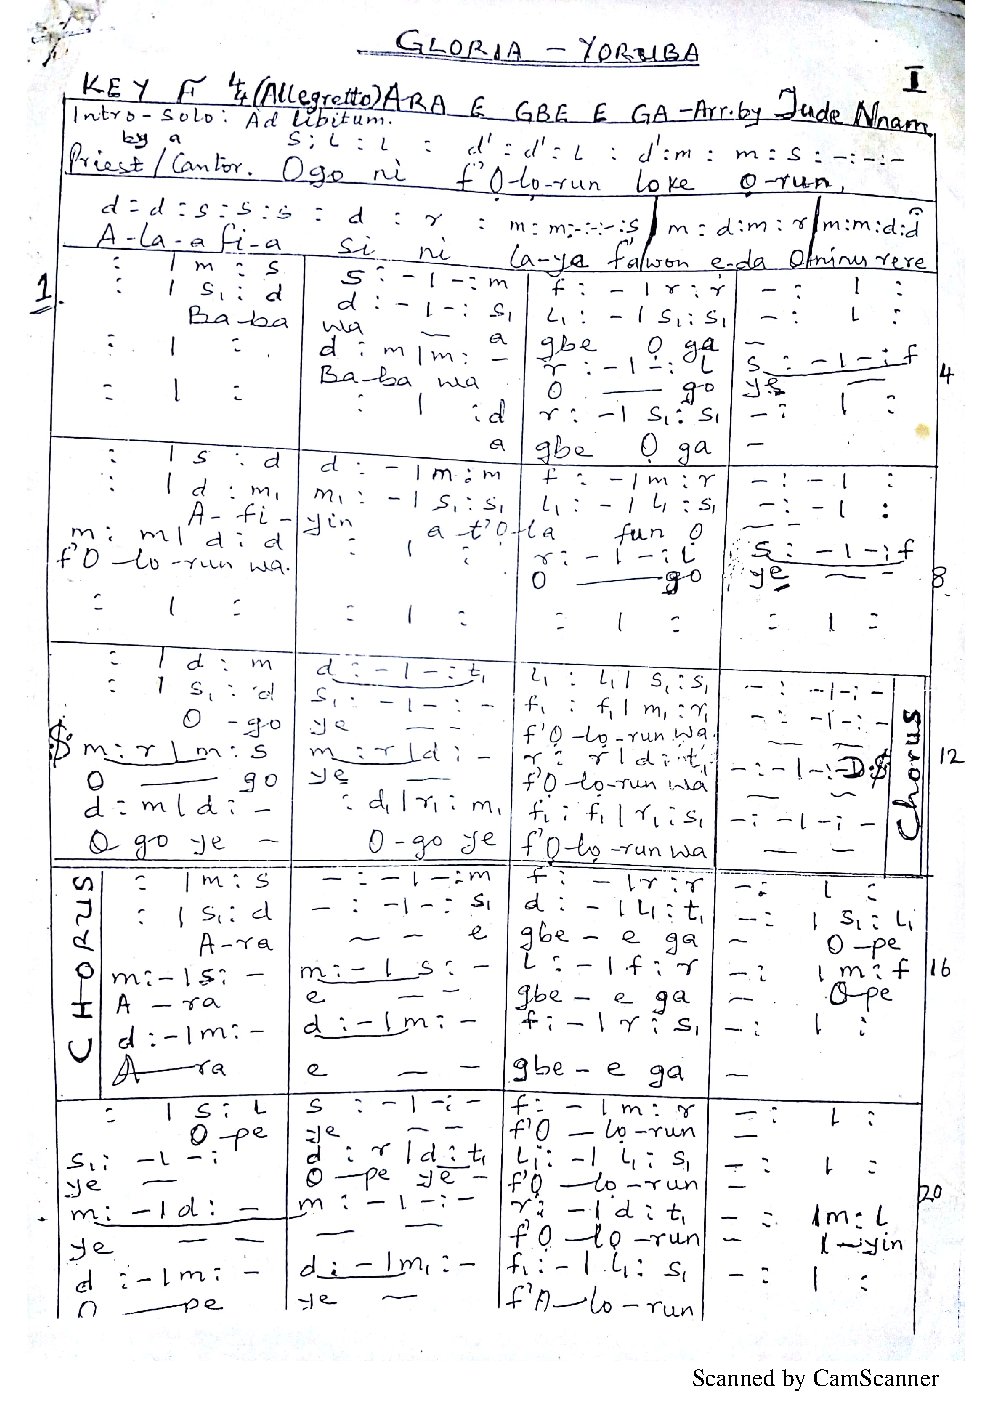 GLORIA – YORUBA
I
KEY F 4/4 (Allegretto) ARA E GBE E GA – Arr. by Jude Nnam
Intro-Solo: Ad libitum.
by a
Priest/Cantor.
s : l : l : d' : d' : l : d' : m : m : s : - : - : -
Ogo ni f'Ọ-lọ-run loke ọ-run,
d : d : s : s : s : s : d : r : m : m : - : - : - : s / m : d : m : r / m : m : d : d
A-la-a fi-a si ni la-ye fa'won e-da Ominu rere
1.
: | m : s | s : - | - : m | f : - | r : r | - : | :
: | s₁ : d | d : - | - : s₁ | l₁ : - | s₁ : s₁ | - : | :
Ba-ba | wa — a | gbe Ọ ga | –
: | : | d : m | m : - | r : - | - : l | s : - | - : f
Ba-ba wa | O — go | ye —
: | : | : | : d | r : - | s₁ : s₁ | - : | :
a | gbe Ọ ga | –
4
: | s : d | d : - | m : m | f : - | m : r | - : - | :
: | d : m₁ | m₁ : - | s₁ : s₁ | l₁ : - | l₁ : s₁ | - : - | :
A-fi- | yin a t'Ọ-la | fun Ọ
m : m | d : d | : | : | r : - | - : l | s : - | - : f
f'O-lo-run wa. | O — go | ye —
8
: | : | : | : | : | : | : | :
: | d : m | d : - | - : t₁ | l₁ : l₁ | s₁ : s₁ | - : - | - : -
: | s₁ : d | s₁ : - | - : - | f₁ : f₁ | m₁ : r₁ | - : - | - : -
O-go | ye — | f'O-lo-run wa. | —
m : r | m : s | m : r | d : - | r : r | d : t₁ | - : - | - : - D.S
O — go | ye — | f'O-lọ-run wa | —
d : m | d : - | : d₁ | r₁ : m₁ | f₁ : f₁ | r₁ : s₁ | - : - | - : -
O go ye – | O-go ye | f'Ọ-lọ-run wa | —
Chorus
12
CHORUS
: | m : s | - : - | - : m | f : - | r : r | - : | :
: | s₁ : d | - : - | - : s₁ | d : - | l₁ : t₁ | - : | s₁ : l₁
A-ra | — e | gbe – e ga | – O-pe
m : - | s : - | m : - | s : - | l : - | f : r | - : | m : f
A – ra | e — | gbe – e ga | – O-pe
16
d : - | m : - | d : - | m : - | f : - | r : s₁ | - : | :
A — ra | e — | gbe – e ga | –
: | s : l | s : - | - : - | f : - | m : r | - : | :
O-pe | ye — | f'O – lọ-run | –
s₁ : - | - : | d : r | d : t₁ | l₁ : - | l₁ : s₁ | - : | :
ye — | O – pe ye – | f'Ọ – lo-run | –
20
m : - | d : - | m : - | - : - | r : - | d : t₁ | - : | m : l
ye — | — | f'Ọ – lọ-run | – I-yin
d : - | m : - | d : - | m₁ : - | f₁ : - | l₁ : s₁ | - : | :
O — pe | ye — | f'A – lo-run
Scanned by CamScanner